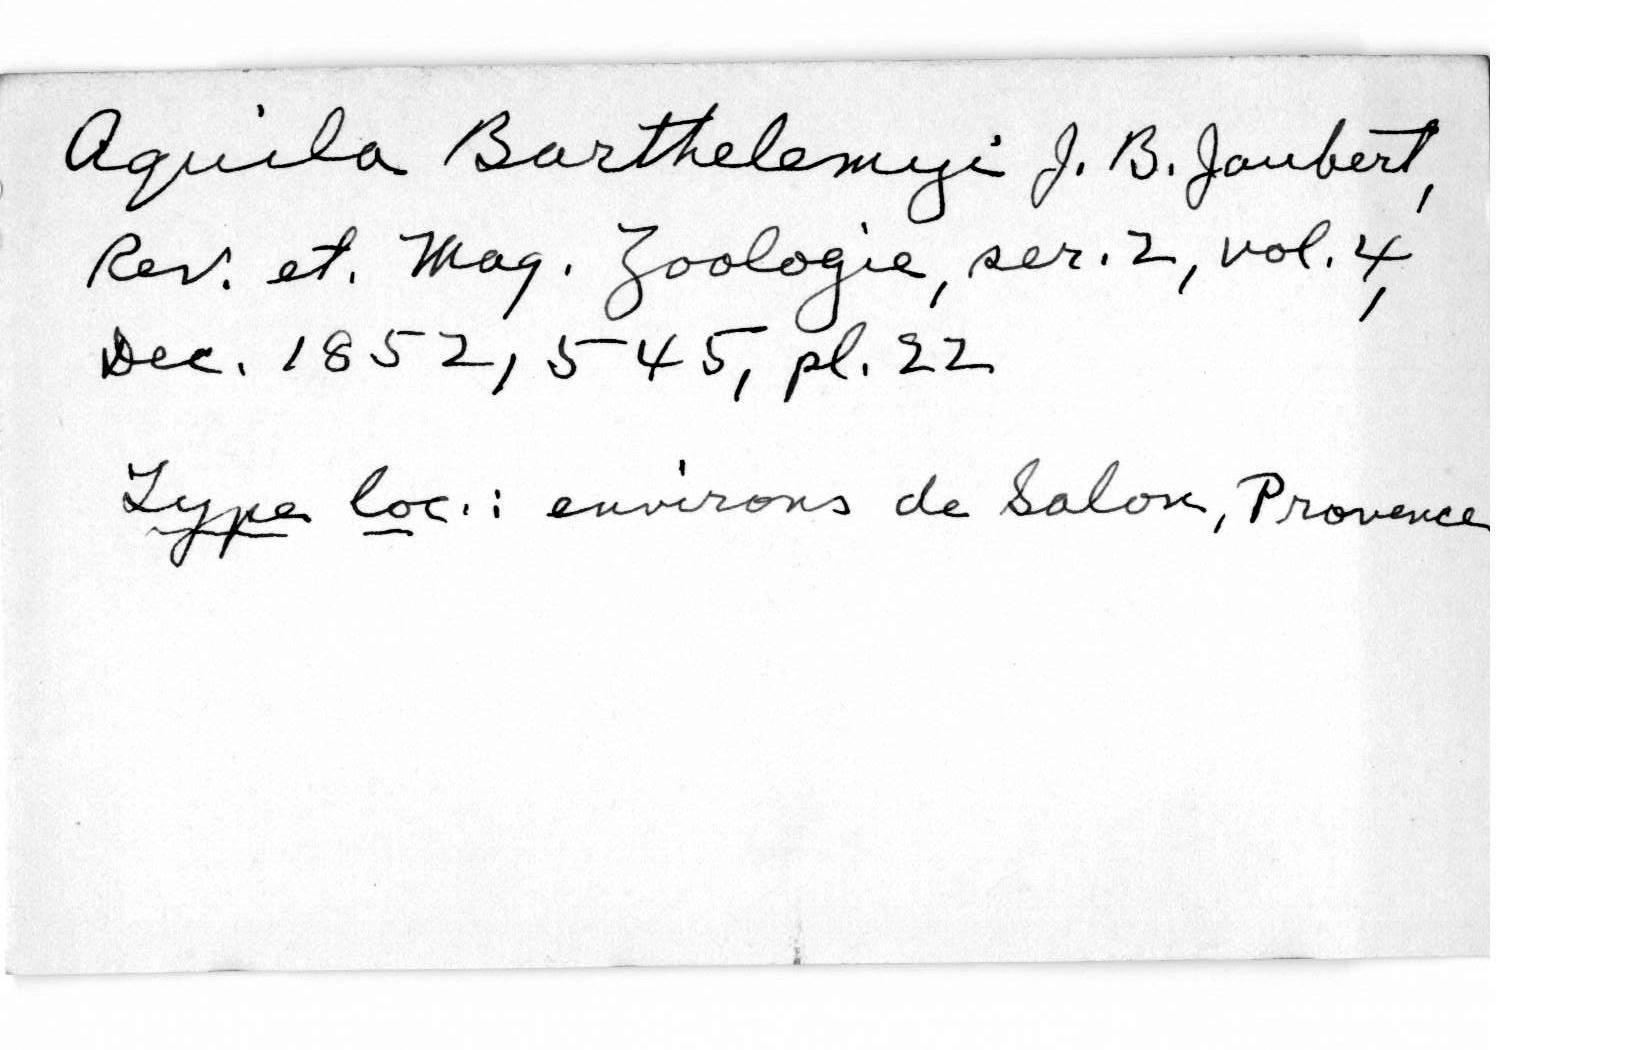 Aquila Barthelemyi J. B. Jaubert,
Rev. et. Mag. Zoologie, ser. 2, vol. 4,
Dec. 1852, 545, pl. 22
Type loc.: environs de Salon, Provence